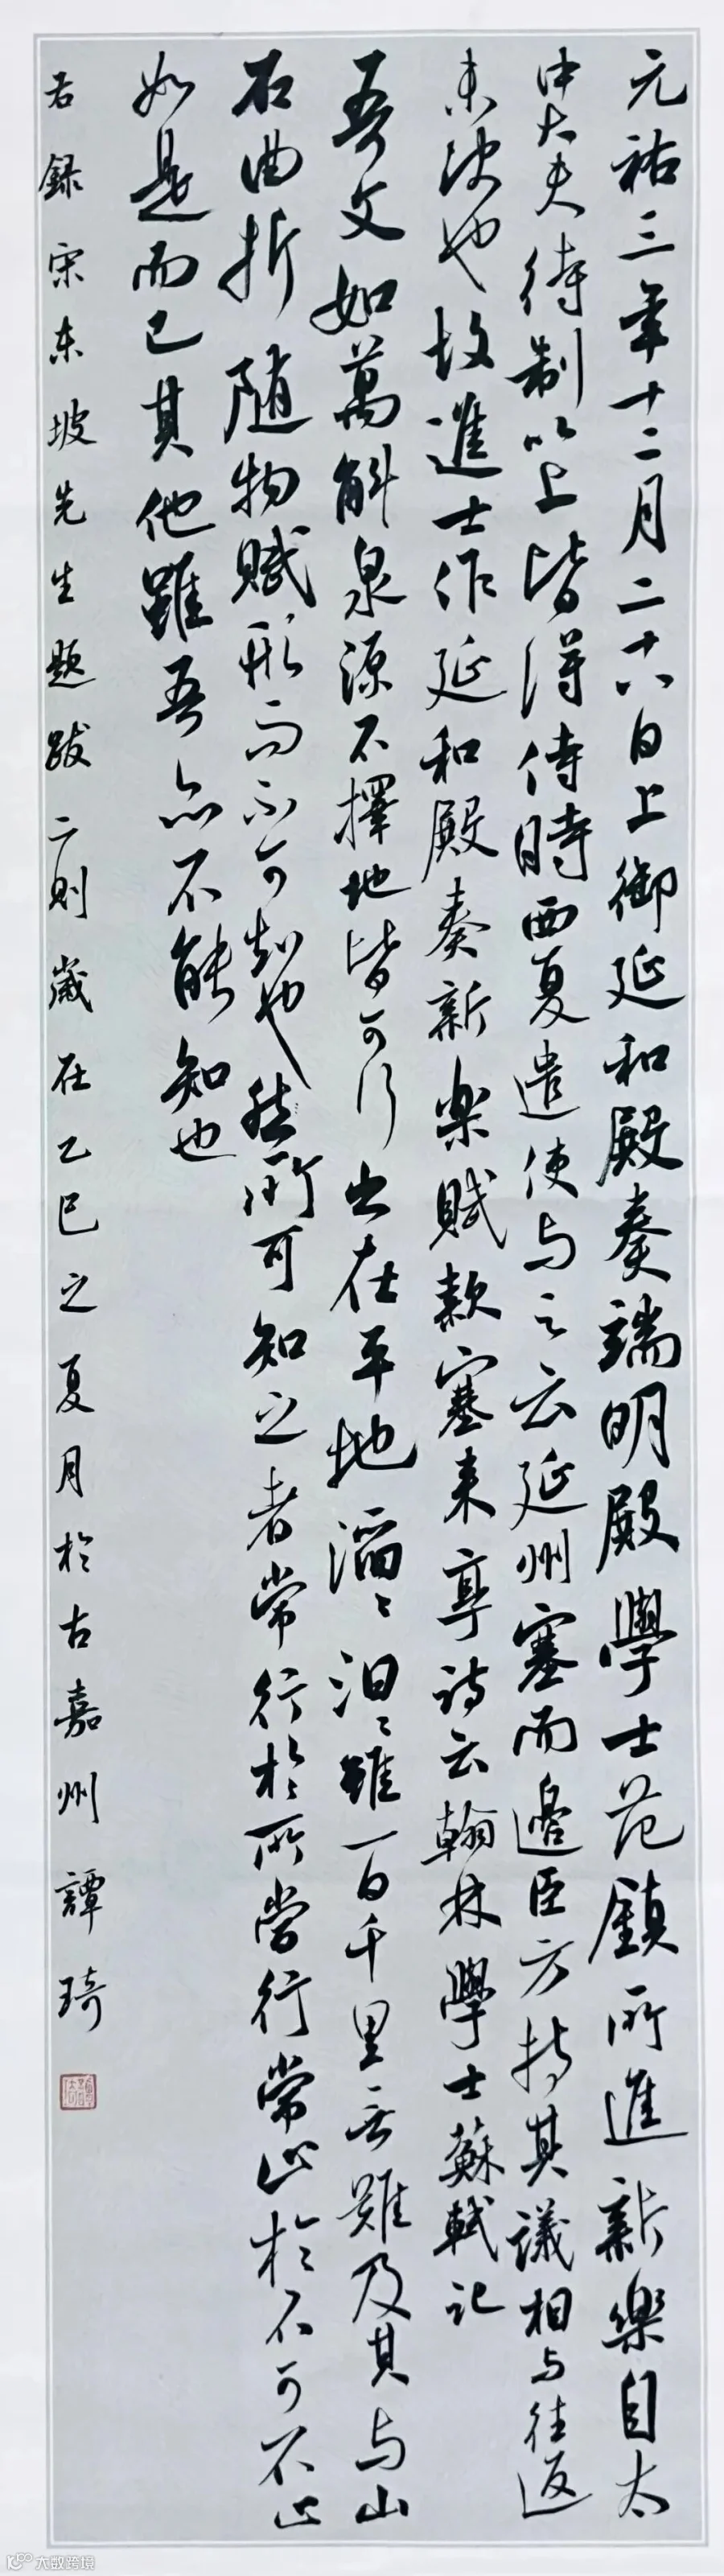 元祐三年十二月二十六日上御延和殿奏端明殿學士范鎮所進新樂自太
中大夫待制以上皆得侍時西夏遣使与之云延州塞而邊臣方持其議相与往返
未決也故進士作延和殿奏新樂賦款塞来享詩云翰林學士蘇軾記
吾文如萬斛泉源不擇地皆可行出在平地滔々汩々雖一日千里無難及其与山
石曲折随物賦形而不可知也然所可知之者常行於所當行常止於不可不止
如是而已其他雖吾亦不能知也
右録宋東坡先生題跋二則歲在乙巳之夏月於古嘉州譚琦
大数跨境